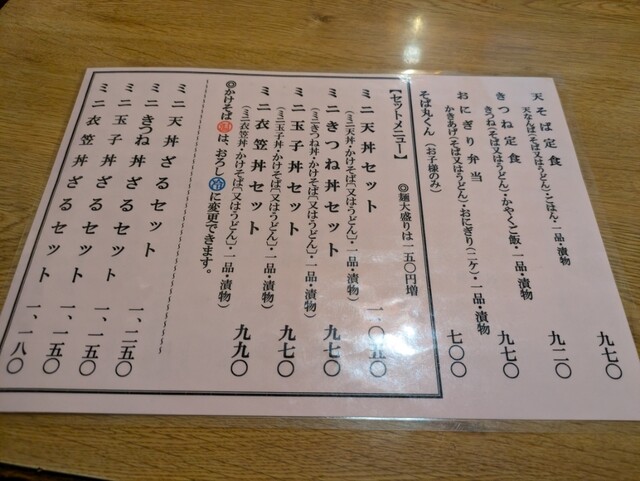 天そば定食　九七〇
天なんば(そば又はうどん)・ごはん・一品・漬物
きつね定食　九二〇
きつね(そば又はうどん)・かやくご飯・一品・漬物
おにぎり弁当　九七〇
かきあげ(そば又はうどん)・おにぎり(二ケ)・一品・漬物
そば丸くん(お子様のみ)　七〇〇
【セットメニュー】　◎麺大盛りは一五〇円増
ミニ天丼セット　一、〇五〇
(ミニ天丼・かけそば〔又はうどん〕・一品・漬物)
ミニきつね丼セット　九七〇
(ミニきつね丼・かけそば〔又はうどん〕・一品・漬物)
ミニ玉子丼セット　九七〇
(ミニ玉子丼・かけそば〔又はうどん〕・一品・漬物)
ミニ衣笠丼セット　九九〇
(ミニ衣笠丼・かけそば〔又はうどん〕・一品・漬物)
◎かけそば温は、おろし冷に変更できます。
ミニ天丼ざるセット　一、二五〇
ミニきつね丼ざるセット　一、一五〇
ミニ玉子丼ざるセット　一、一五〇
ミニ衣笠丼ざるセット　一、一八〇